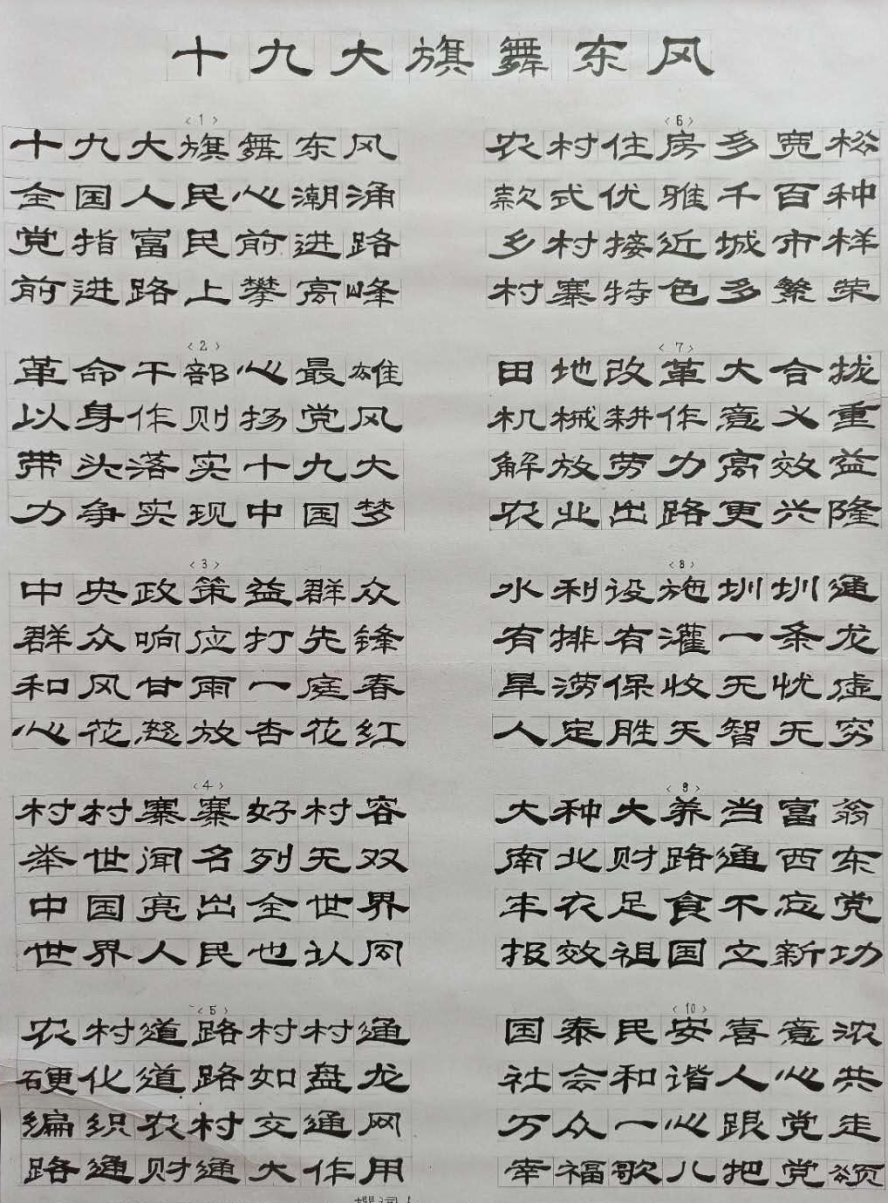 十九大旗舞东风
<1>
十九大旗舞东风
全国人民心潮涌
党指富民前进路
前进路上攀高峰
<2>
革命干部心最雄
以身作则扬党风
带头落实十九大
力争实现中国梦
<3>
中央政策益群众
群众响应打先锋
和风甘雨一庭春
心花怒放杏花红
<4>
村村寨寨好村容
举世闻名列无双
中国亮出全世界
世界人民也认同
<5>
农村道路村村通
硬化道路如盘龙
编织农村交通网
路通财通大作用
<6>
农村住房多宽松
款式优雅千百种
乡村接近城市样
村寨特色多繁荣
<7>
田地改革大合拢
机械耕作意义重
解放劳力高效益
农业出路更兴隆
<8>
水利设施圳圳通
有排有灌一条龙
旱涝保收无忧虚
人定胜天智无穷
<8>
大种大养当富翁
南北财路通西东
丰衣足食不忘党
报效祖国立新功
<10>
国泰民安喜意浓
社会和谐人心共
万众一心跟党走
幸福歌儿把党颂